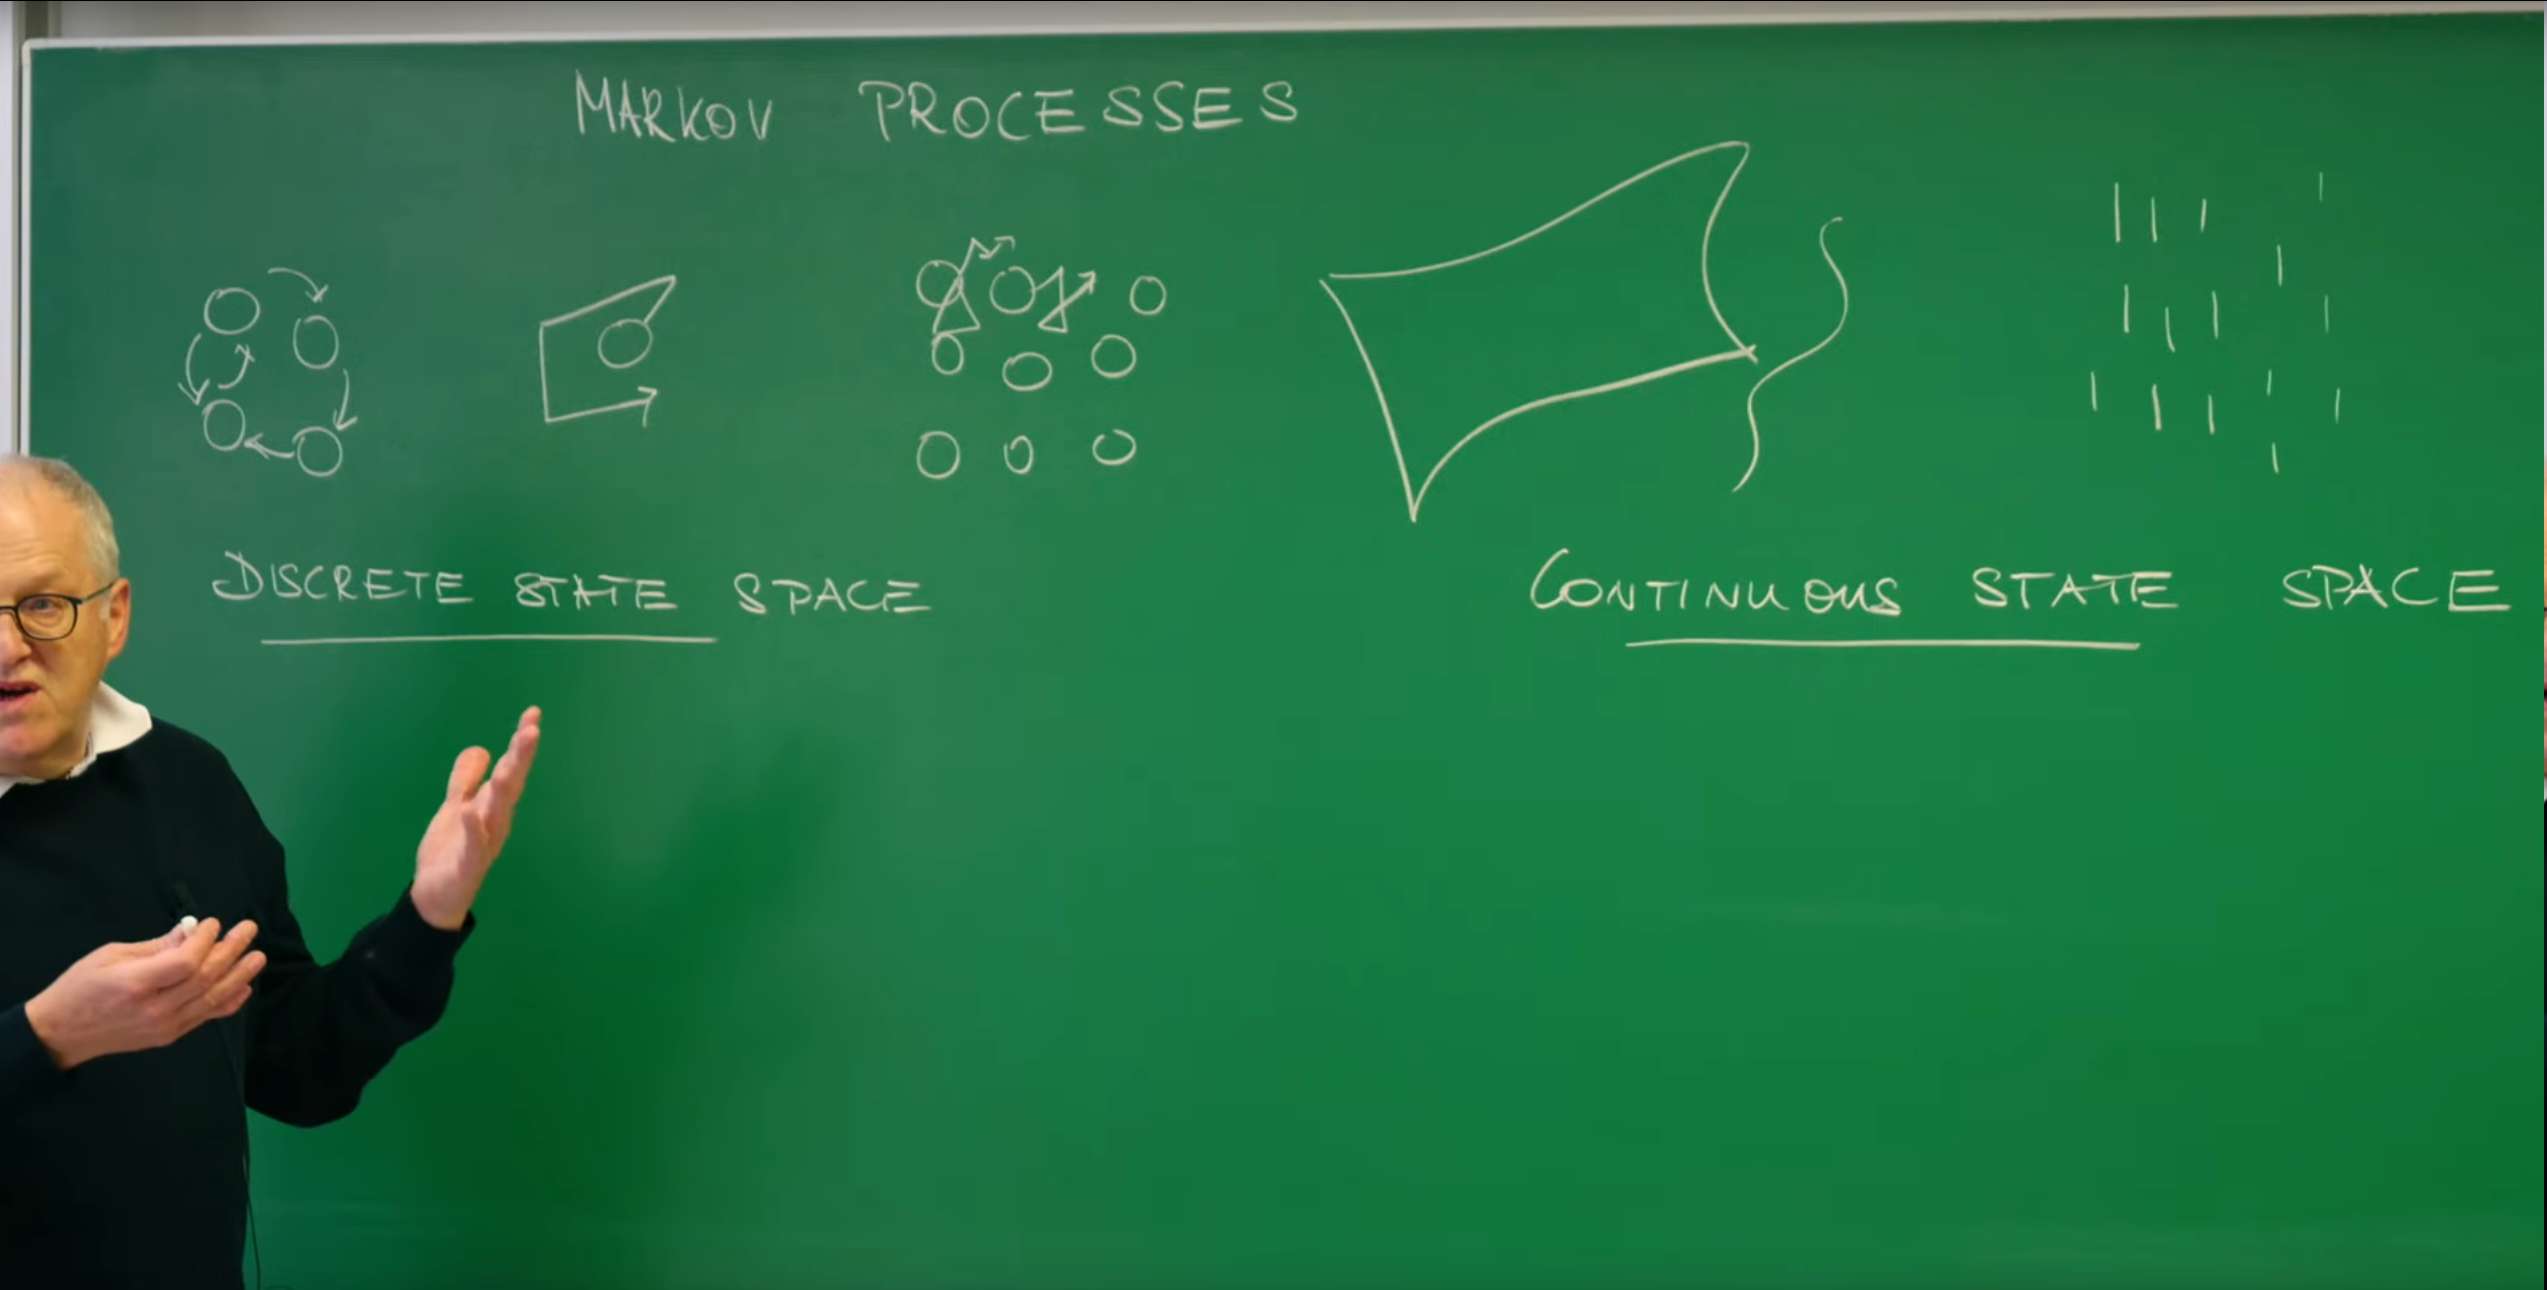 MARKOV PROCESSES
DISCRETE STATE SPACE
CONTINUOUS STATE SPACE